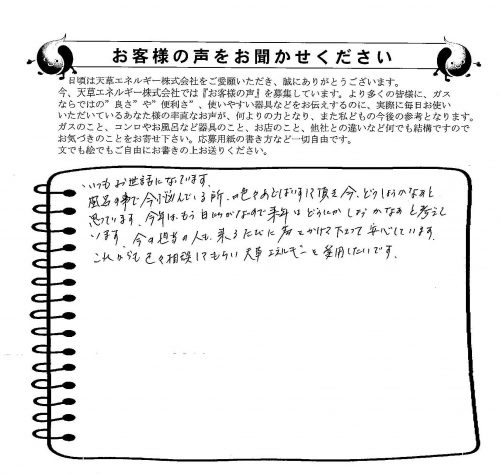 お客様の声をお聞かせください
日頃は天草エネルギー株式会社をご愛願いただき、誠にありがとうございます。
今、天草エネルギー株式会社では『お客様の声』を募集しています。より多くの皆様に、ガス
ならではの”良さ”や”便利さ”、使いやすい器具などをお伝えするのに、実際に毎日お使い
いただいているあなた様の率直なお声が、何よりの力となり、また私どもの今後の参考となります。
ガスのこと、コンロやお風呂など器具のこと、お店のこと、他社との違いなど何でも結構ですので
お気づきのことをお寄せ下さい。応募用紙の書き方など一切自由です。
文でも絵でもご自由にお書きの上お送りください。
いつもお世話になっています。
風呂の事で今悩んでいる所、色々あどばいすして頂き今、どうしようかなあと
思っています。今年は、もう日にちがないので来年はどうにかしようかなあと考えて
います。今の担当の人も、来るたびに声をかけて下さって安心しています。
これからも色々相談してもらい天草エネルギーを愛用したいです。